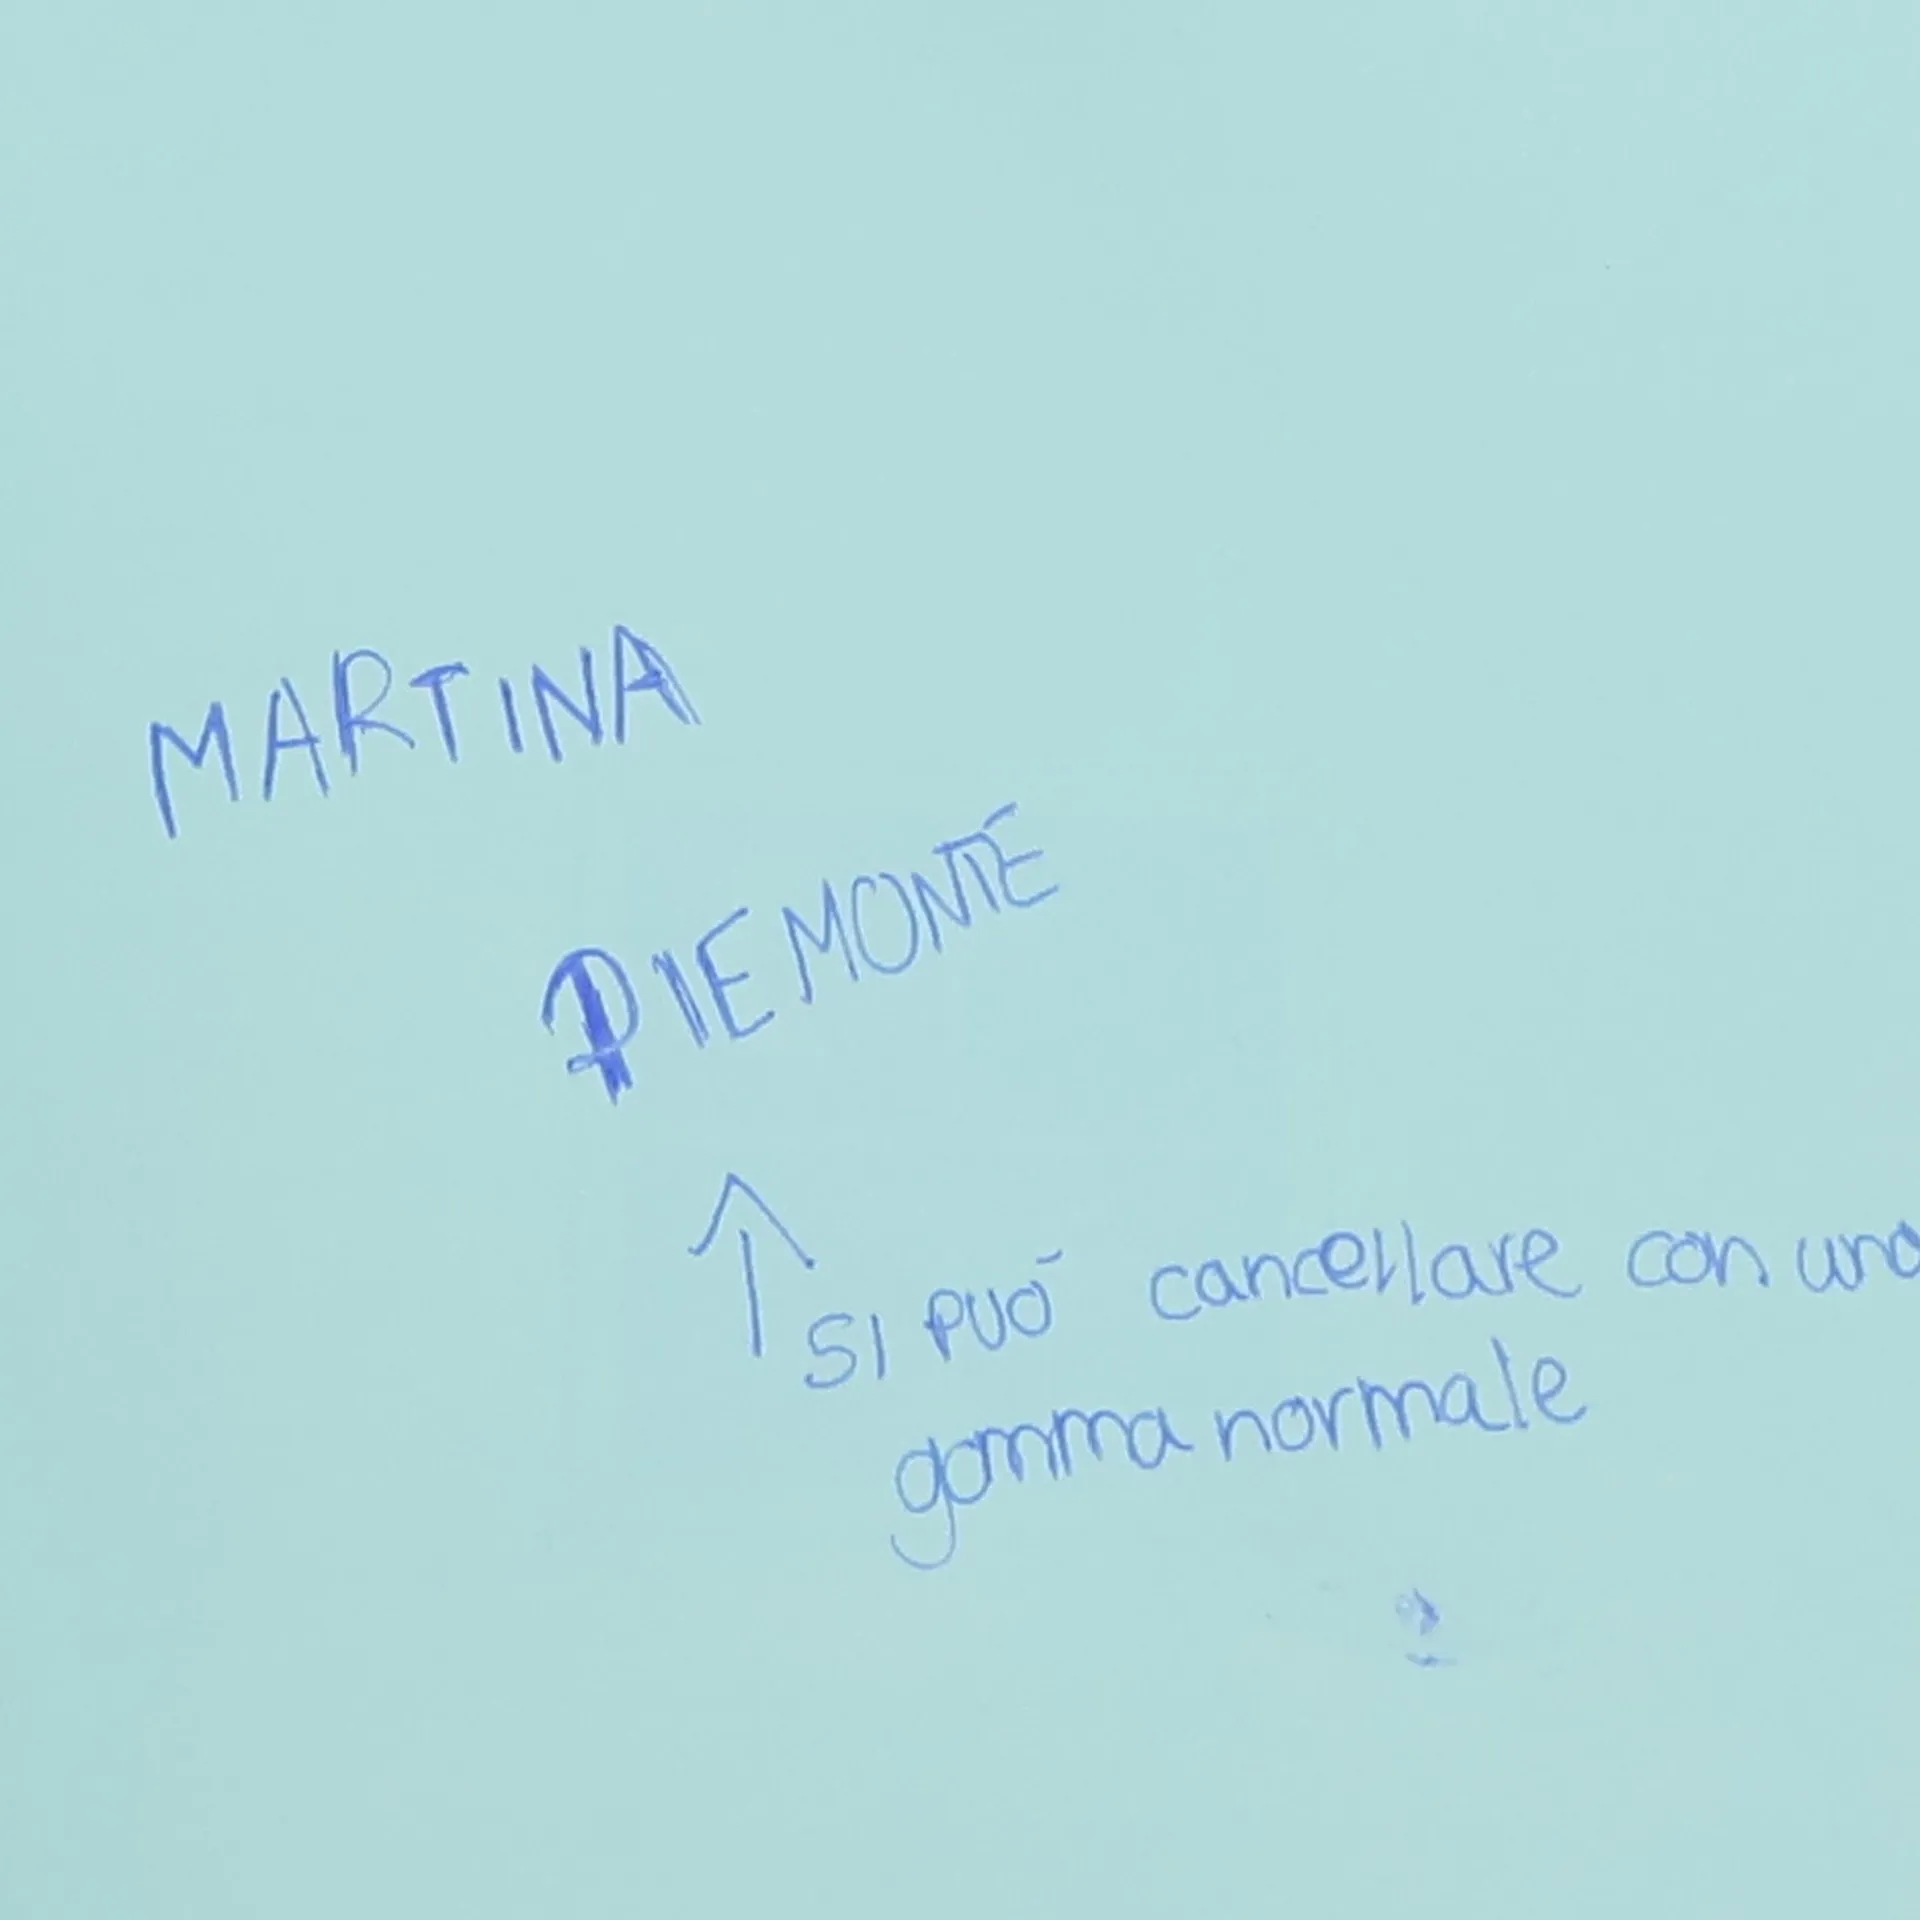 MARTINA
PIEMONTÉ
↑ SI PUÓ cancellare con una
gomma normale